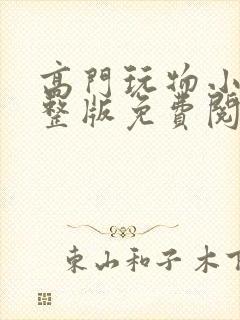 高門玩物小
整版免費閱
東山和子木下